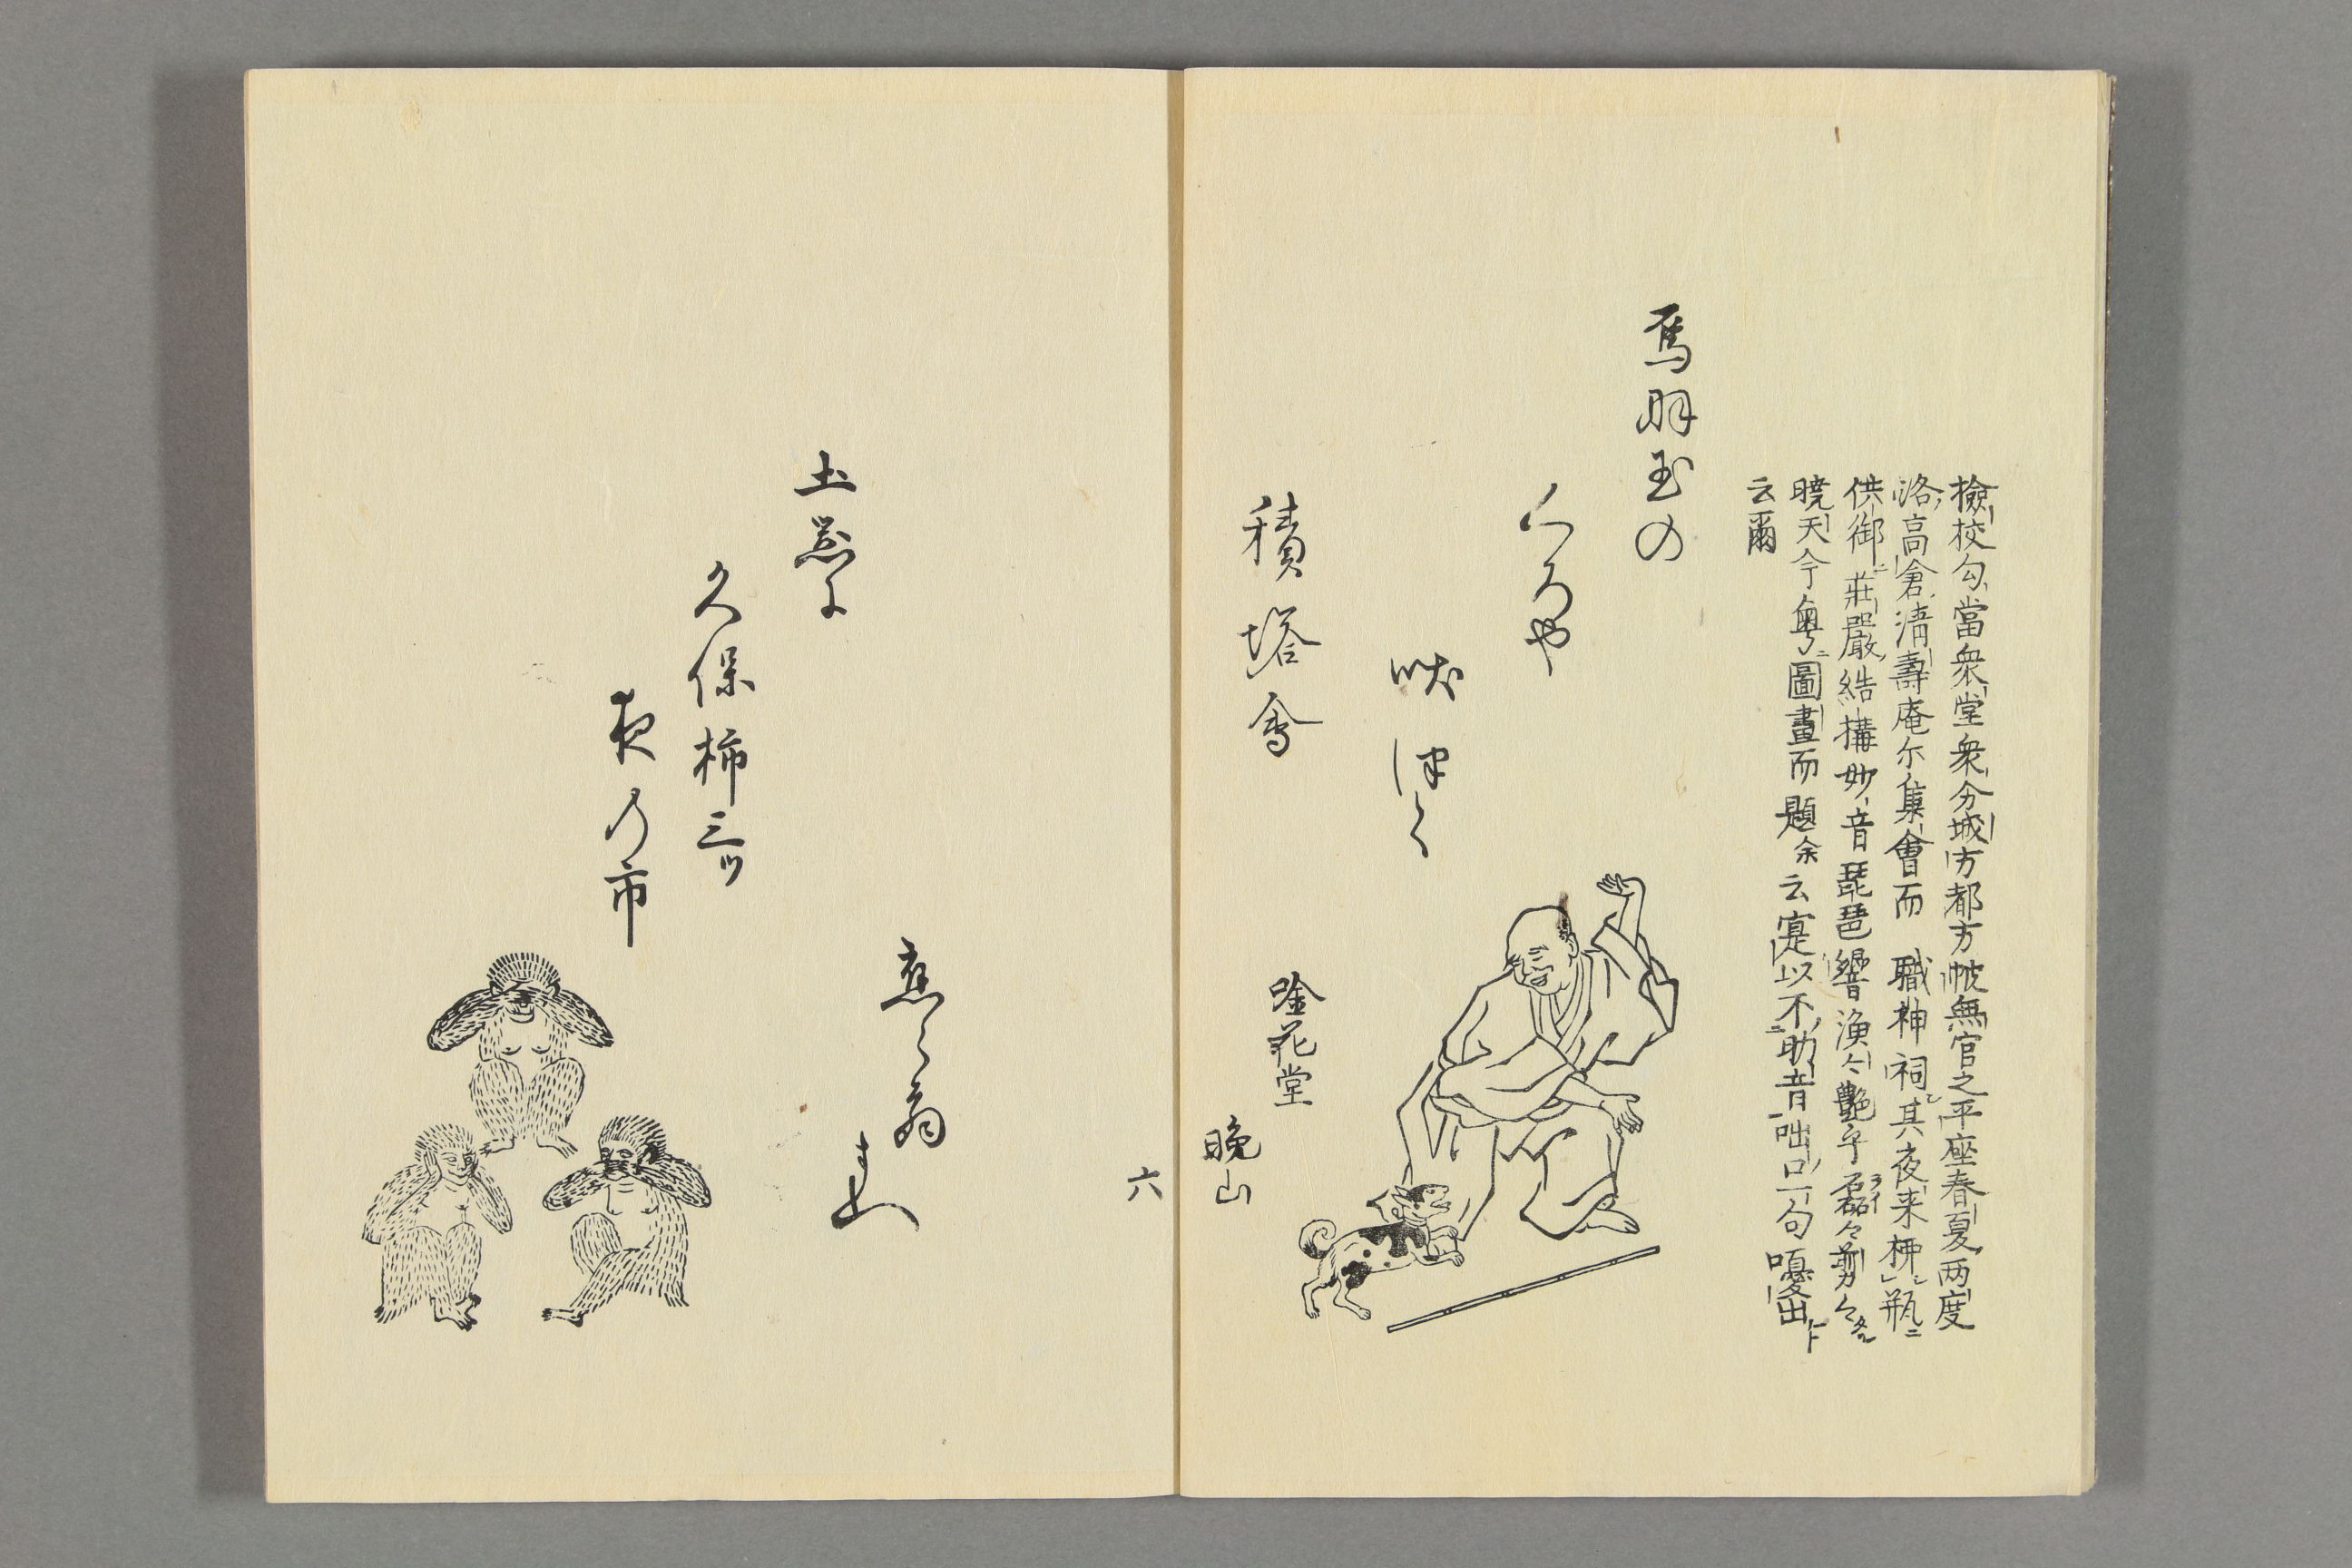 撿校勾當衆堂衆分城方都方帔無官之平座春夏両度
洛高倉清壽庵尓集會而 職神祠其夜来柳瓶
供御荘嚴結構妙音琵琶響漁々艶乎磊々剪々
暁天今粤圖畫而題余云寔以不助音咄口一句嚘出
云爾
烏羽玉の
くろや
咲け
積塔會
唫花堂
晩山
六
土器よ
久保柿三ツ
夜乃市
翁